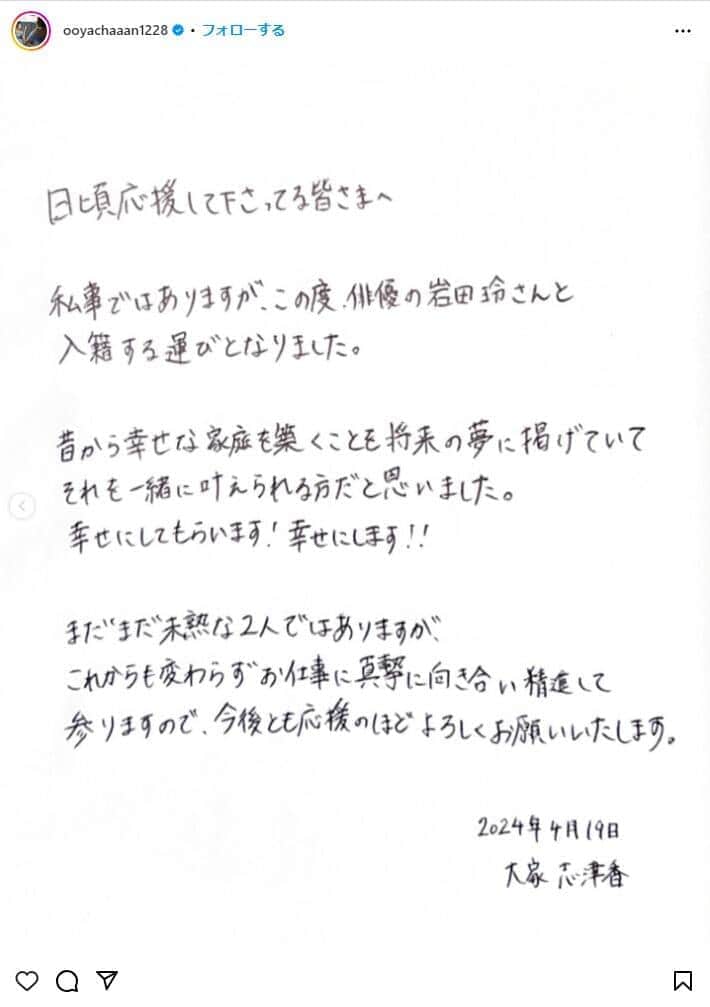 ooyachaaan1228 • フォローする
日頃応援して下さってる皆さまへ
私事ではありますが、この度、俳優の岩田玲さんと
入籍する運びとなりました。
昔から幸せな家庭を築くことも将来の夢に掲げていて
それを一緒に叶えられる方だと思いました。
幸せにしてもらいます!幸せにします!!
まだまだ未熟な2人ではありますが、
これからも変わらずお仕事に真摯に向き合い精進して
参りますので、今後とも応援のほどよろしくお願いいたします。
2024年4月19日
大家志津香